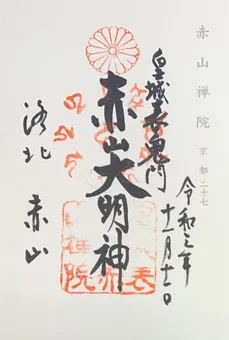 赤山禅院
京都二十七
皇城表鬼門
令和元年
十一月十一日
赤山大明神
洛北 赤山